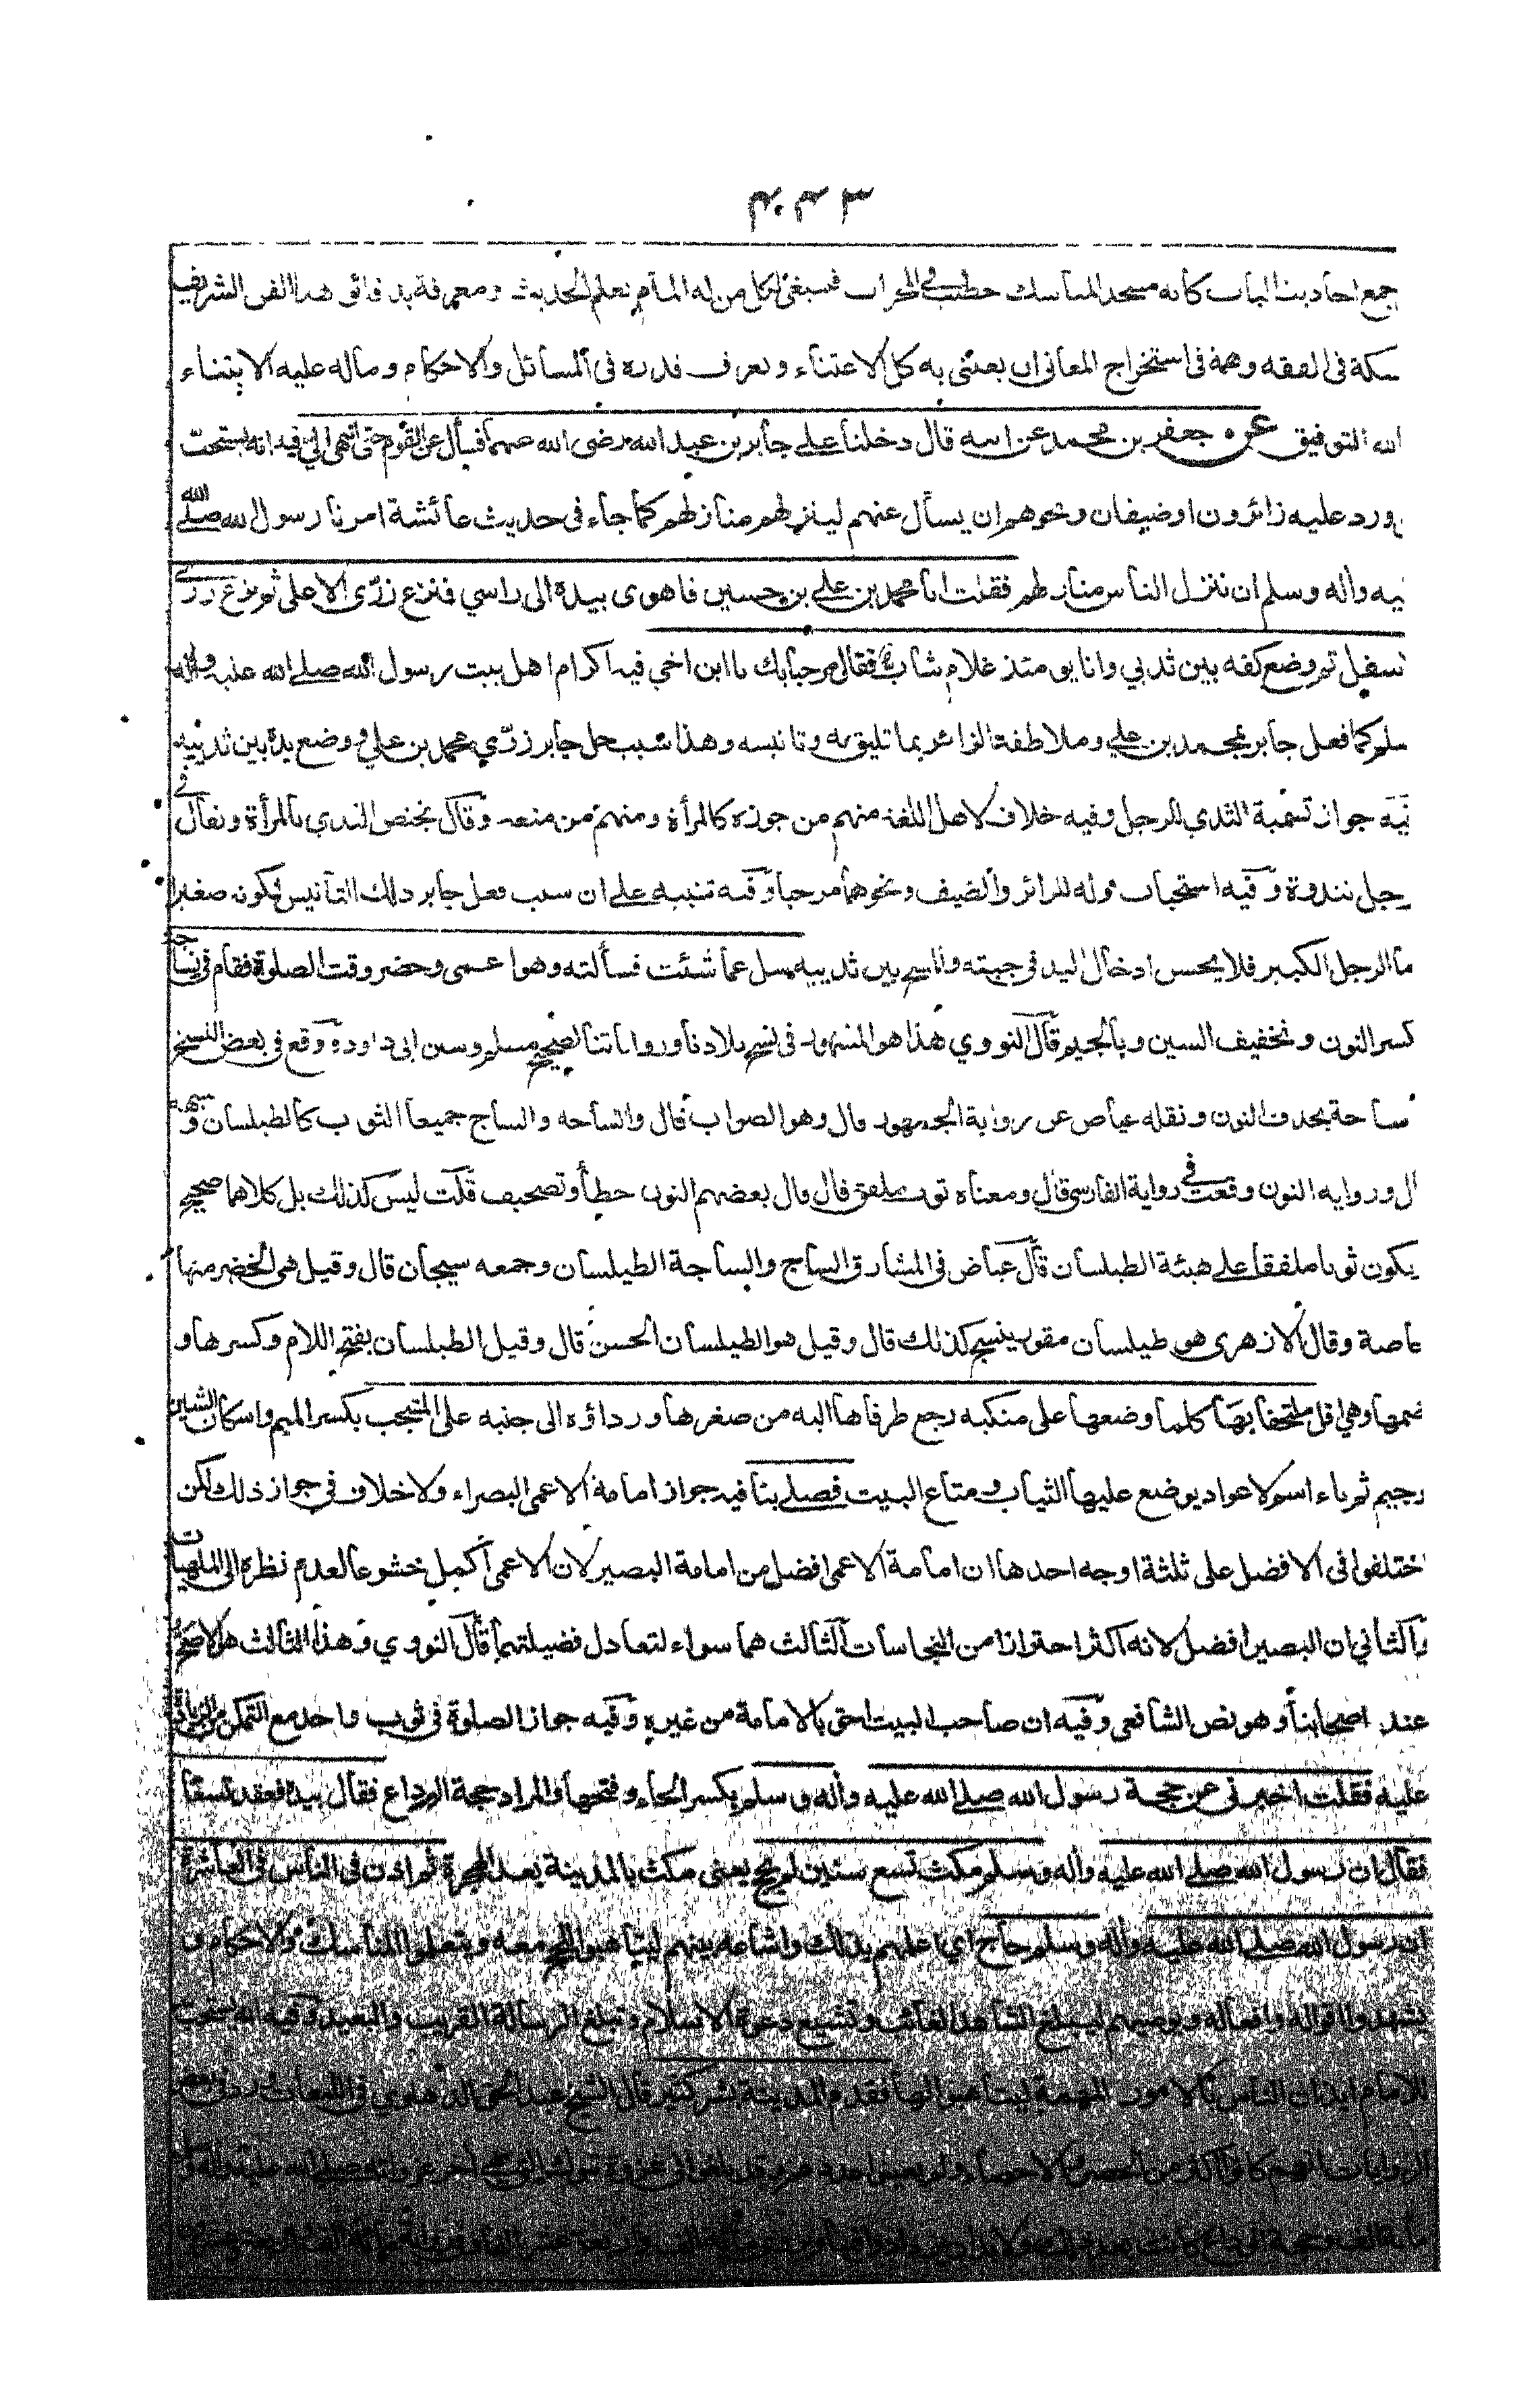 جمع احاديث الباب كانه مسجد المناسك خطب في المحراب فينبغي لكل من له المام بعلم الحديث ومعرفة بدقائق هذا الفن الشريف
سكة في الفقه وهمة في استخراج المعاني ان يعتنى به كل الاعتناء ويعرف قدره في المسائل والاحكام وماله عليه الابتناء
الله التوفيق عن جعفر بن محمد عن ابيه قال دخلنا على جابر بن عبد الله رضى الله عنهما فسأل عن القوم حتى انتهى الي فيه انه يستحب
ورد عليه زائرون اوضيفان ونحوهم ان يسأل عنهم لينزلهم منازلهم كما جاء في حديث عائشة امرنا رسول الله صلى الله
عليه واله وسلم ان ننزل الناس منازلهم فقلت انا محمد بن علي بن حسين فاهوى بيده الى راسي فنزع زرى الاعلى ثم نزع زرى
سفل ثم وضع كفه بين ثديي وانا يومئذ غلام شاب فقال مرحبا بك يا ابن اخي فيه اكرام اهل بيت رسول الله صلى الله عليه واله
سلم كما فعل جابر بمحمد بن علي وملاطفة الزائر بما تليق به وتانيسه وهذا سبب حل جابر زري محمد بن علي ووضع يده بين ثدييه
فيه جواز تسمية الثدي للرجل وفيه خلاف لاهل اللغة منهم من جوزه كالمرأة ومنهم من منعه وقال يختص الثدي بالمرأة ويقال في
رجل ثندوة وفيه استحباب قوله للزائر والضيف ونحوهما مرحبا وفيه تنبيه على ان سبب فعل جابر ذلك التانيس لكونه صغيرا
ما الرجل الكبير فلا يحسن ادخال اليد في جيبه والمسح بين ثدييه سل عما شئت فسألته وهو اعمى وحضر وقت الصلوة فقام في نساجة
كسر النون وتخفيف السين وبالجيم قال النووي هذا هو المشهور في نسخ بلادنا ورواياتنا لصحيح مسلم وسنن ابى داود ووقع في بعض النسخ
ساحة بحذف النون ونقله عياض عن رواية الجمهور قال وهو الصواب قال والساحه والساج جميعا الثوب كالطيلسان وشبهه
ال ورواية النون وقعت في رواية الفارسي قال ومعناه ثوب ملفق قال قال بعضهم النون خطأ وتصحيف قلت ليس كذلك بل كلاهما صحيح
يكون ثوبا ملفقا على هيئة الطيلسان قال عياض في المشارق الساج والساجة الطيلسان وجمعه سيجان قال وقيل هي الخضر منها
خاصة وقال الازهرى هو طيلسان مقور ينسج كذلك قال وقيل هو الطيلسان الحسن قال وقيل الطيلسان بفتح اللام وكسرها و
ضمها وهي اقل ملتحفا بها كلما وضعها على منكبه رجع طرفاها اليه من صغرها ورداؤه الى جنبه على المشجب بكسر الميم واسكان الشين
وجيم ثم باء اسم لاعواد يوضع عليها الثياب ومتاع البيت فصلى بنا فيه جواز امامة الاعمى البصراء ولا خلاف في جواز ذلك لكن
اختلفوا في الافضل على ثلثة اوجه احدها ان امامة الاعمى افضل من امامة البصير لان الاعمى أكمل خشوعا لعدم نظره الى الملهيات
والثاني ان البصير افضل لانه اكثر احترازا من النجاسات الثالث هما سواء لتعادل فضيلتهما قال النووي وهذا الثالث هو الاصح
عند اصحابنا وهو نص الشافعى وفيه ان صاحب البيت احق بالامامة من غيره وفيه جواز الصلوة في ثوب واحد مع التمكن من الزيادة
عليه فقلت اخبرني عن حجة رسول الله صلى الله عليه واله وسلم بكسر الحاء وفتحها والمراد حجة الوداع فقال بيده فعقد تسعا
فقال ان رسول الله صلى الله عليه واله وسلم مكث تسع سنين لم يحج يعنى مكث بالمدينة بعد الهجرة ثم اذن في الناس في العاشرة
ان رسول الله صلى الله عليه واله وسلم حاج اي اعلمهم بذلك واشاعه بينهم ليتاهبوا للحج معه ويتعلموا المناسك والاحكام و
يشهدوا اقواله وافعاله ويوصيهم ليبلغ الشاهد الغائب وتشيع دعوة الاسلام وتبلغ الرسالة القريب والبعيد وفيه انه يستحب
للامام ايذان الناس بالامور المهمة ليتاهبوا لها فقدم المدينة بشر كثير قال الشيخ عبد الحق الدهلوي في اللمعات ورد في بعض
الروايات انهم كانوا اكثر من